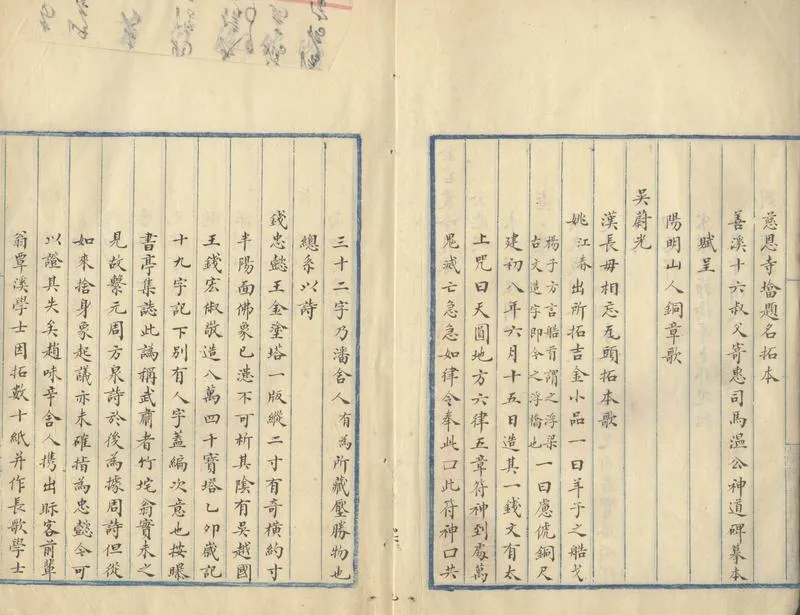 慈恩寺墖題名拓本
善溪十六叔父寄惠司馬温公神道碑摹本
賦呈
陽明山人銅章歌
吳蔚光
漢長毋相忘瓦頭拓本歌
姚江春出所拓吉金小品一曰羊子之船戈
楊子方言船首謂之浮梁
古文造字即今之浮橋也
一曰慮俿銅尺
建初八年六月十五日造其一錢文有太
上咒曰天圓地方六律五章符神到處萬
鬼滅亡急急如律令奉此口此符神口共
三十二字乃潘舍人有為所藏壓勝物也
總系以詩
錢忠懿王金塗塔一版縱二寸有奇橫約寸
半陽面佛象已漶不可析其陰有吳越國
王錢宏俶敬造八萬四千寶塔乙卯歲記
十九字記下別有人字蓋編次意也按曝
書亭集誌此譌稱武肅者竹垞翁實未之
見故繫元周方泉詩於後為據周詩但從
如來捨身象起議亦未確指為忠懿今可
以證其失矣趙味辛舍人攜出眎客前輩
翁覃溪學士因拓數十紙并作長歌學士